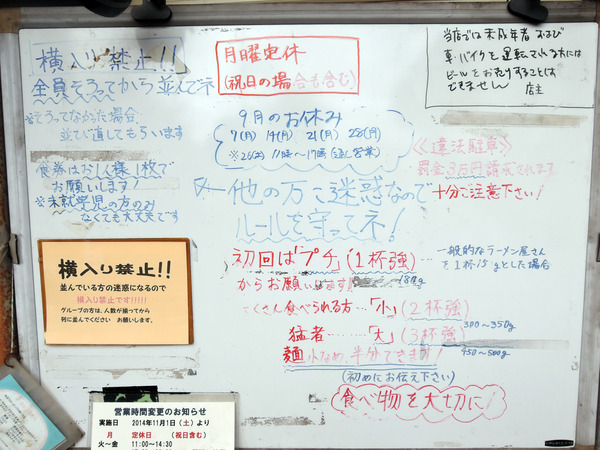 横入り禁止!!
全員そろってから並んでネ
※そろってなかった場合
並び直してもらいます
食券はお1人様1枚で
お願いします!
※未就学児の方のみ
なくても大丈夫です
月曜定休
(祝日の場合も含む)
当店では未成年者および
車・バイクを運転される方には
ビールをお売りすることは
できません 店主
9月のお休み
7(月) 14(月) 21(月) 28(月)
≪違法駐車≫
罰金3万円請求されます
十分ご注意下さい!
他の方に迷惑なので
ルールを守ってネ!
初回は「プチ」(1杯強)
一般的なラーメン屋さん
を1杯とした場合
からお願いします
180g
たくさん食べられる方…「小」(2杯強)
300〜350g
猛者………「大」(3杯強)
450〜500g
麺 少なめ、半分できます!
(初めにお伝え下さい)
食べ物を大切に!
横入り禁止!!
並んでいる方の迷惑になるので
横入り禁止です!!!!!
グループの方は、人数が揃ってから
列に並んでください お願いします。
営業時間変更のお知らせ
実施日 2014年11月1日(土)より
月 定休日 (祝日含む)
火〜金 11:00〜14:30